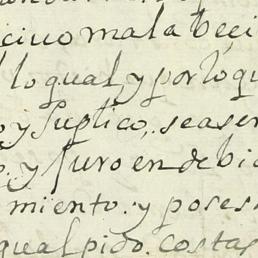 civo mala be
lo qual, y por lo qu
y suplico, se aser
y juro en debi
miento. y poses
qual pido. costas